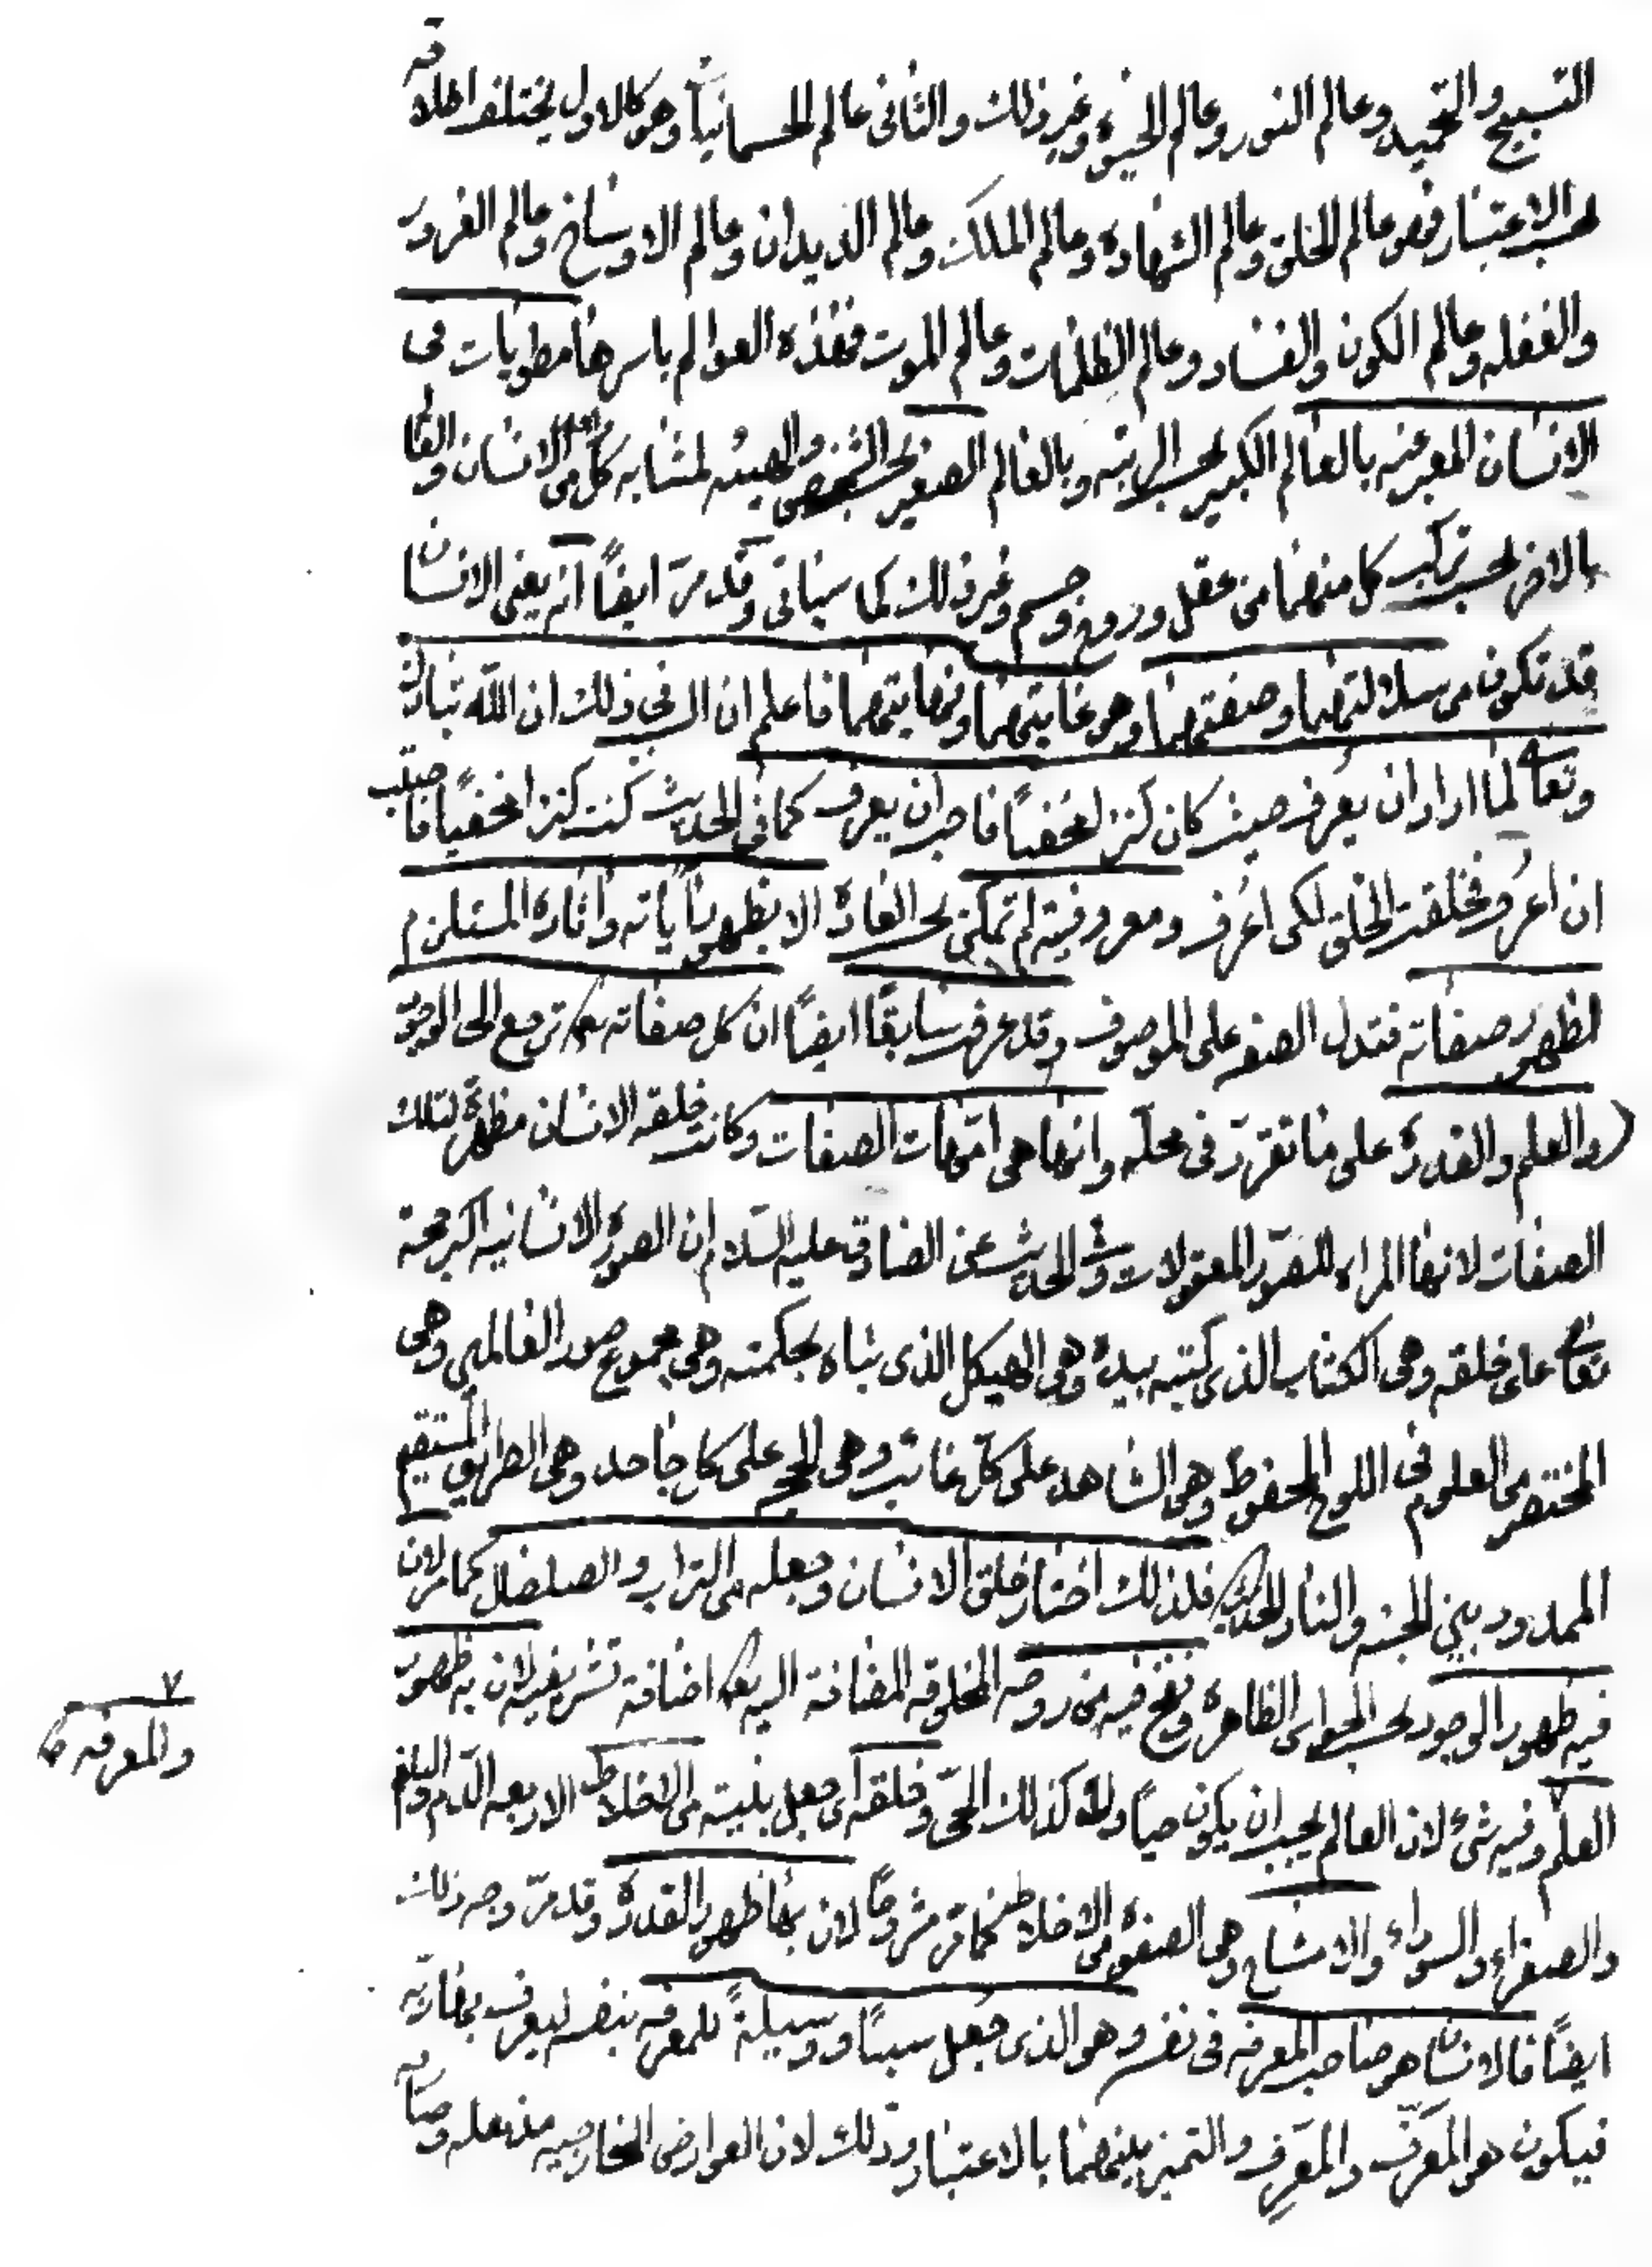 التسبيح والتحميد وعالم النور وعالم الحيوة وغير ذلك والثانى عالم الجسمانيات وهو كالاول يختلف اطلاقه
بحسب الاعتبار فهو عالم الخلق وعالم الشهادة وعالم الملك وعالم الديدان وعالم الاوساخ وعالم الغرور
والغفله وعالم الكون والفساد وعالم الظلمات وعالم الموت فهذه العوالم باسرها مطويات فى
الانسان المعبر عنه بالعالم الكبير بحسب الرتبه وبالعالم الصغير بحسب الشخص والهيئه لمشابه كل من الانسان والعا
بالاخر بحسب تركيب كل منهما من عقل وروح وجسم وغير ذلك كما سياتى وقد مرّ ايضاً انه يعنى الانسان
قد تكون من سلالتهما وصفتهما وهو غايتهما ونهايتهما فاعلم ان السر فى ذلك ان الله تبارك
وتعالى لما اراد ان يُعرف حيث كان كنزا مخفياً فاحب ان يعرف كما فى الحديث كنت كنزا مخفياً فاحببت
ان اُعرف فخلقت الخلق لكى اُعرف ومعروفيته لم تمكن بحسب العادة الا بظهور آياته وآثاره المستلزم
لظهور صفاته فتدل الصفه على الموصوف وقد عرفت سابقاً ايضاً ان كل صفاته تعالى ترجع الى الوجود
والعلم والقدرة على ما تقرّر فى محلّه وانها هى امّهات الصفات وكانت خلقه الانسان مظهرة لتلك
الصفات لانها المراه للصور المعقولات وفى الحديث عن الصادق عليه السلام ان الصورة الانسانيه اكبر حجة
تعالى على خلقه وهى الكتاب الذى كتبه بيده وهى الهيكل الذى بناه بحكمته وهى مجموع صور العالمين وهى
المختصر من العلوم فى اللوح المحفوظ وهى الشاهد على كل غائب وهى الحجه على كل جاحد وهى الطريق المستقيم
الممدود بين الجنه والنار الحديث فلذلك اختار خلق الانسان وجعله من التراب والصلصال كما مر لان
فيه ظهور الوجود بحسب الحواس الظاهرة ونفخ فيه من روحه المخلوقه المضافة اليه تعالى اضافة تشريفيه لان به ظهور
العلم وفيه شىء لان العالم يجب ان يكون حياً ولا كذلك الحىّ وخلقه اى جعل بنيته من الاخلاط الاربعه الدم والبلغم
والصفراء والسوداء والامشاج وهى الصفوة من الاخلاط كما مر مشروحاً لان بها ظهور القدرة وقد مرّ وجه ذلك
ايضاً فالانسان هو صاحب المعرفه فى نفسه وهو الذى جعل سبباً ووسيلةً للمعرفه بنفسه ليعرف بخارته
فيكون هو المعرَّف والمعرِّف والتميز بينهما بالاعتبار وذلك لان العوارض الخارجيه من فعله وصفاته
٧
والمعرفه